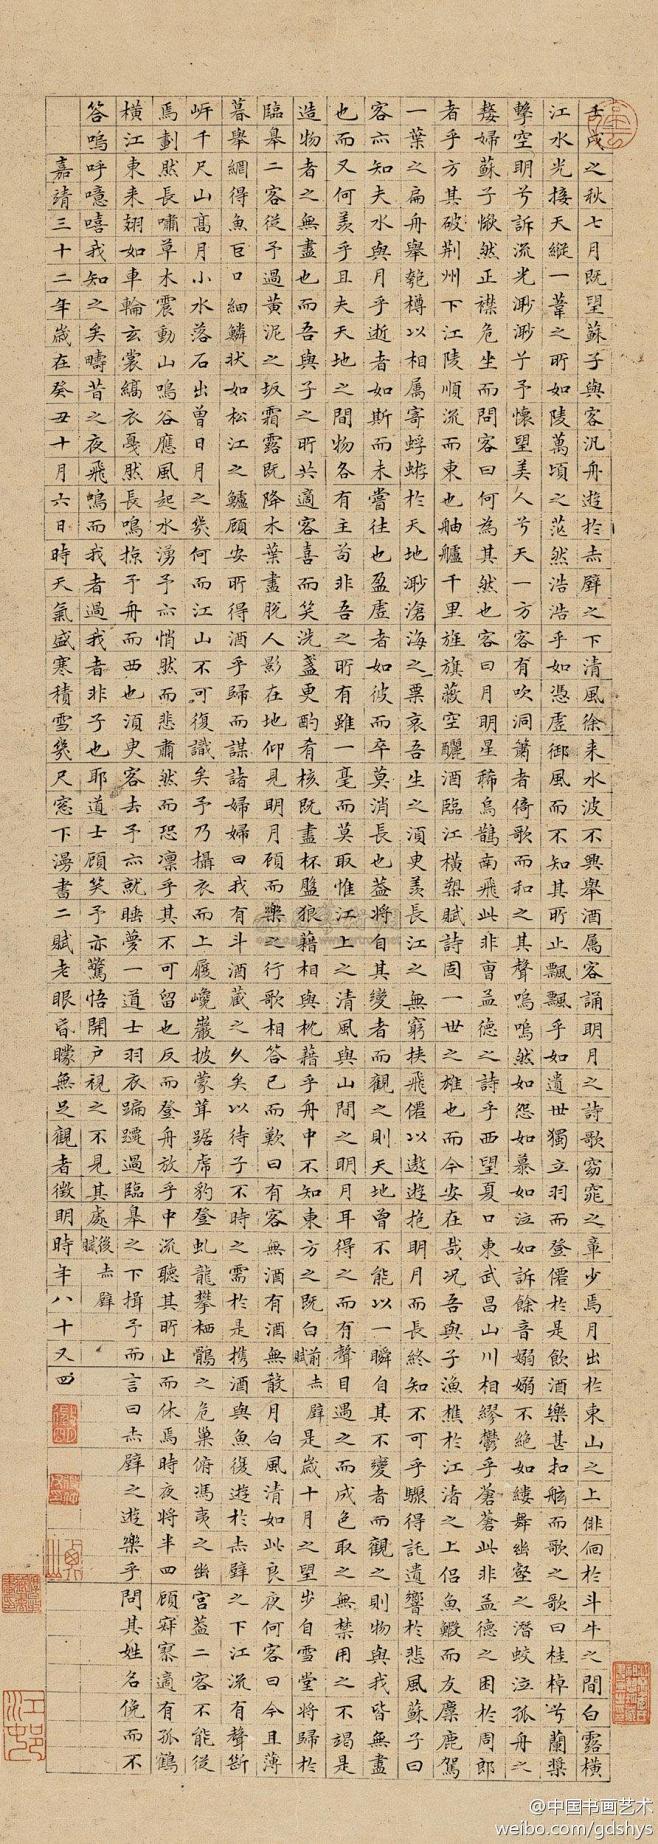 壬戌之秋七月既望蘇子與客汎舟遊於赤壁之下清風徐来水波不興舉酒属客誦明月之詩歌窈窕之章少焉月出於東山之上俳佪於斗牛之間白露橫
江水光接天縱一葦之所如陵萬頃之茫然浩浩乎如憑虛御風而不知其所止飄飄乎如遺世獨立羽而登僊於是飲酒樂甚扣舷而歌之歌曰桂棹兮蘭槳
擊空明兮訴流光渺渺兮予懷望美人兮天一方客有吹洞簫者倚歌而和之其聲嗚嗚然如怨如慕如泣如訴餘音嫋嫋不絶如縷舞幽壑之潛蛟泣孤舟之
嫠婦蘇子愀然正襟危坐而問客曰何為其然也客曰月明星稀烏鵲南飛此非曹孟德之詩乎西望夏口東武昌山川相繆鬱乎蒼蒼此非孟德之困於周郎
者乎方其破荆州下江陵順流而東也舳艫千里旌旗蔽空釃酒臨江橫槊賦詩固一世之雄也而今安在哉况吾與子漁樵於江渚之上侣魚鰕而友麋鹿駕
一葉之扁舟舉匏樽以相属寄蜉蝣於天地渺滄海之粟哀吾生之湏臾羨長江之無窮挟飛僊以遨遊抱明月而長終知不可乎驟得託遺響於悲風蘇子曰
客亦知夫水與月乎逝者如斯而未嘗往也盈虛者如彼而卒莫消長也蓋將自其變者而觀之則天地曾不能以一瞬自其不變者而觀之則物與我皆無盡
也而又何羨乎且夫天地之間物各有主苟非吾之所有雖一毫而莫取惟江上之清風與山間之明月耳得之而有聲目遇之而成色取之無禁用之不竭是
造物者之無盡也而吾與子之所共適客喜而笑洗盞更酌肴核既盡杯盤狼藉相與枕藉乎舟中不知東方之既白前赤壁賦是歲十月之望步自雪堂將歸於
臨皋二客從予過黄泥之坂霜露既降木葉盡脱人影在地仰見明月顧而樂之行歌相答已而歎曰有客無酒有酒無殽月白風清如此良夜何客曰今且薄
暮舉網得魚巨口細鱗状如松江之鱸顧安所得酒乎歸而謀諸婦婦曰我有斗酒藏之久矣以待子不時之需於是携酒與魚復遊於赤壁之下江流有聲斷
岸千尺山髙月小水落石出曽日月之幾何而江山不可復識矣予乃攝衣而上履巉巖披蒙茸踞虎豹登虬龍攀栖鶻之危巢俯馮夷之幽宮蓋二客不能從
焉劃然長嘯草木震動山鳴谷應風起水湧予亦悄然而悲肅然而恐凛乎其不可留也反而登舟放乎中流聽其所止而休焉時夜將半四顧寂寥適有孤鶴
橫江東来翅如車輪玄裳縞衣戛然長鳴掠予舟而西也湏臾客去予亦就睡夢一道士羽衣蹁躚過臨皋之下揖予而言曰赤壁之遊樂乎問其姓名俛而不
答嗚呼噫嘻我知之矣疇昔之夜飛鳴而我者過我者非子也耶道士顧笑予亦驚悟開户視之不見其處後赤壁賦
嘉靖三十二年歲在癸丑十月六日時天氣盛寒積雪幾尺窓下漫書二賦老眼昏矇無足觀者徵明時年八十又四
江邨
@中国书画艺术
weibo.com/gdshys